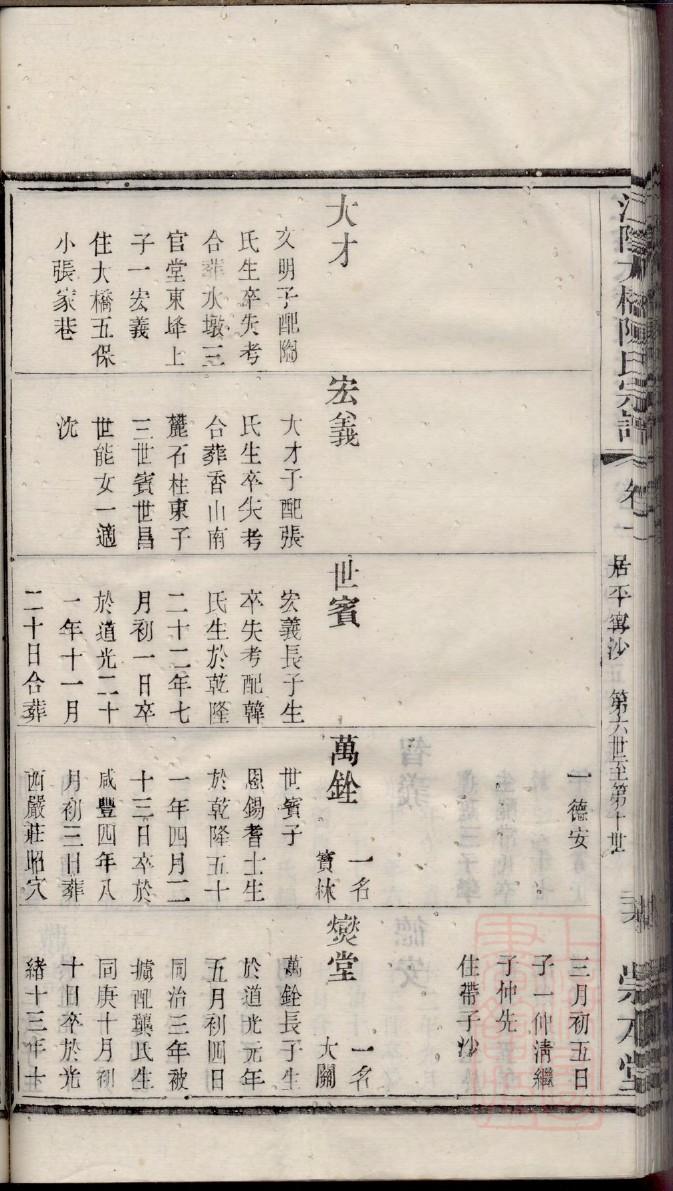 江陰大橋陳氏宗譜
卷一
居平寗沙
第六世至第十世
崇本堂
大才
文明子配陶
氏生卒失考
合葬水墩三
官堂東埄上
子一宏義
住大橋五保
小張家巷
宏義
大才子配張
氏生卒失考
合葬香山南
麓石柱東子
三世賓世昌
世能女一適
沈
世賓
宏義長子生
卒失考配韓
氏生於乾隆
二十二年七
月初一日卒
於道光二十
一年十一月
二十日合葬
一德安
萬銓
一名
寶林
世賓子
恩錫耆士生
於乾隆五十
一年四月二
十三日卒於
咸豐四年八
月初三日葬
西嚴莊昭穴
三月初五日
子一仲淸繼
子仲先
住帶子沙
爕堂
一名
大關
萬銓長子生
於道光元年
五月初四日
同治三年被
擄配龔氏生
同庚十月初
十日卒於光
緒十三年十